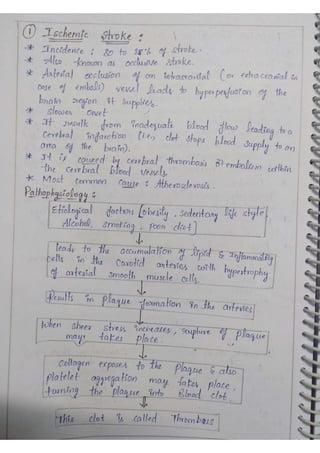 ① Ischemic Stroke :
* Incidence : 80 to 85% of stroke.
* Also known as occlusive stroke.
* Arterial occlusion of an intracranial (or extracranial in
case of emboli) vessel leads to hyperperfusion of the
brain region it supplies.
* Slower onset
* It result from inadequate blood flow leading to a
cerebral infarction (i.e., clot stops blood supply to an
area of the brain).
* It is caused by cerebral thrombosis or embolism within
the cerebral blood vessels.
* Most common cause : Atherosclerosis.
Pathophysiology :
Etiological factors [obesity, sedentary life style,
Alcohol, smoking, poor diet]
leads to the accumulation of lipid & Inflammatory
cells in the carotid arteries with hypertrophy
of arterial smooth muscle cells.
Results in plaque formation in the arteries
When sheer stress increases, roupture of plaque
may takes place.
Collagen exposes to the plaque & also
platelet aggregation may takes place.
turning the plaque into Blood clot.
This clot is called Thrombus